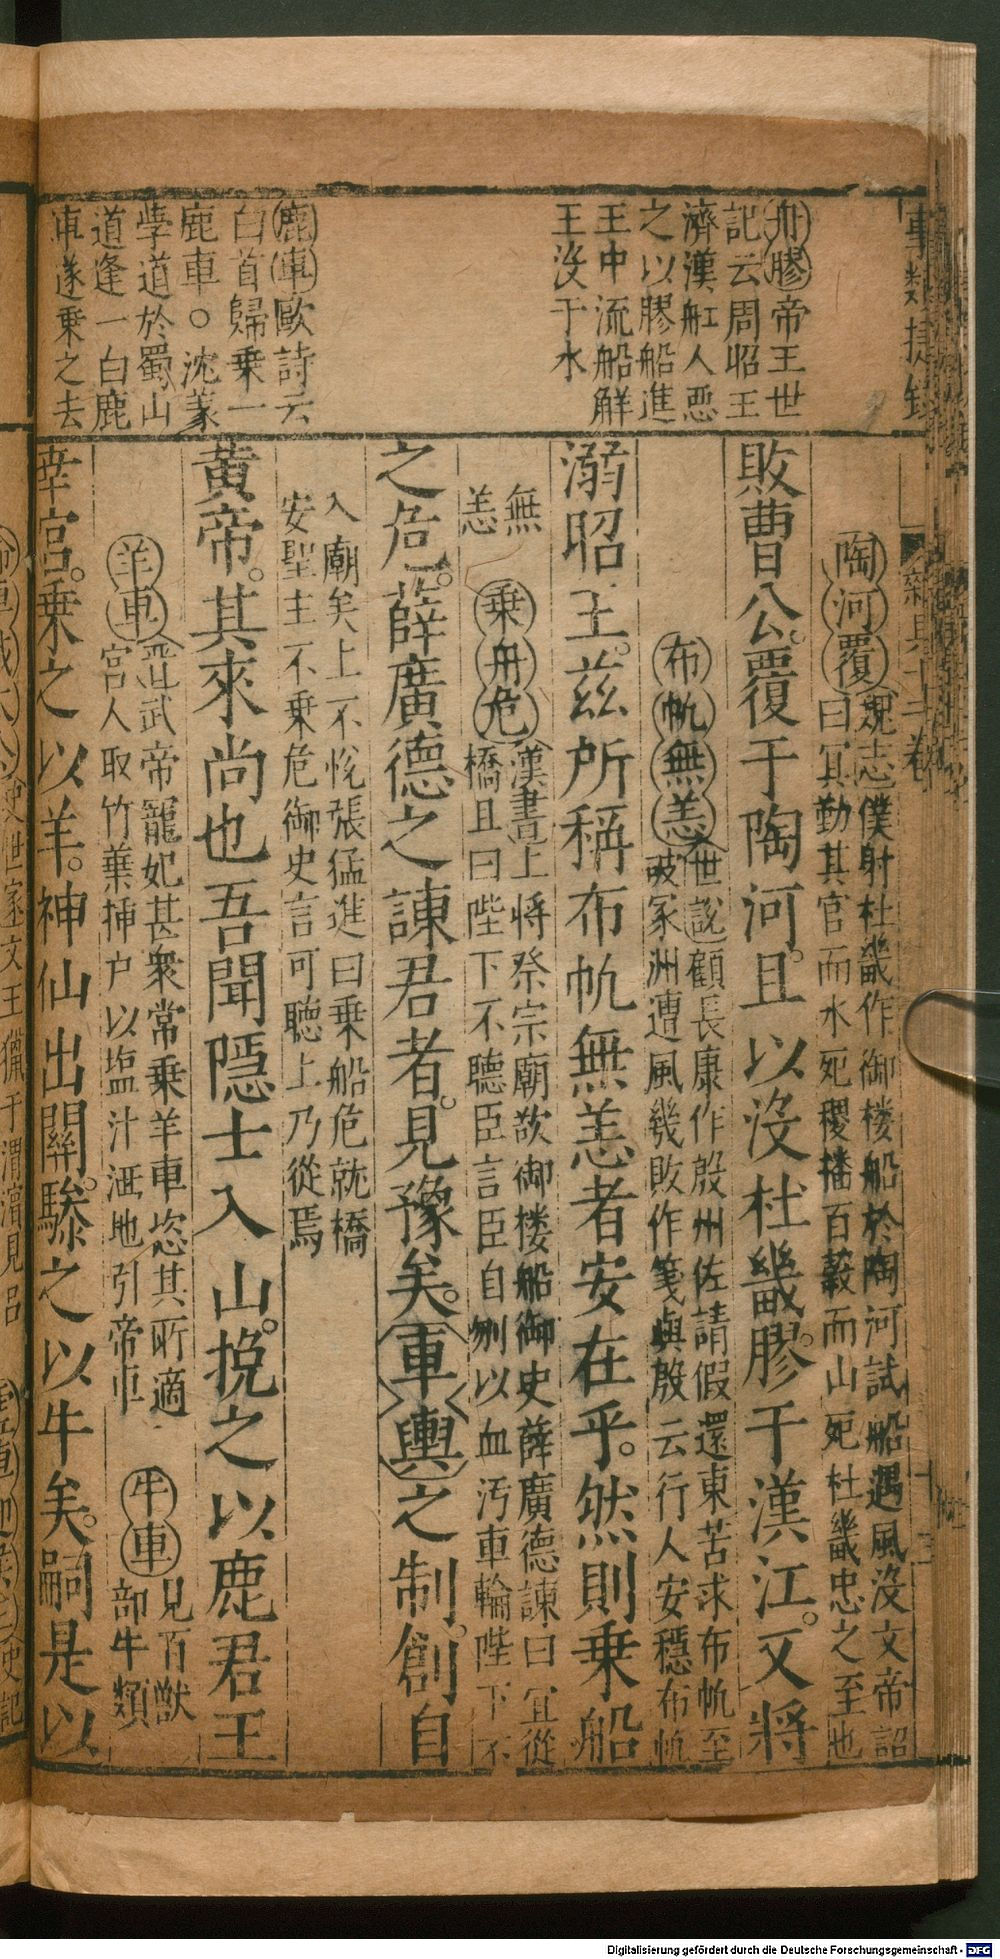 舟膠帝王世
記云周昭王
濟漢舡人惡
之以膠船進
王中流船解
王沒于水
鹿車歐詩云
白首歸乗一
鹿車○沈羲
學道於蜀山
道逢一白鹿
車遂乗之去
陶河覆魏志僕射杜畿作御楼船於陶河試船遇風沒文帝詔
曰冥勤其官而水死稷播百穀而山死杜畿忠之至也
敗曹公。覆于陶河。且以沒杜畿。膠于漢江。又將
布帆無恙世說顧長康作殷州佐請假還東苦求布帆至
破冢洲遭風幾敗作箋與殷云行人安穩布帆
溺昭王。茲所稱布帆無恙者安在乎。然則乗船
無
恙
乗舟危漢書上將祭宗廟欲御楼船御史薛廣德諫曰宜從
橋且曰陛下不聴臣言臣自刎以血汚車輪陛下不
之危。薛廣德之諫君者。見豫矣。車輿之制。創自
入廟矣上不悅張猛進曰乗船危就橋
安聖主不乗危御史言可聴上乃從焉
黄帝。其來尚也吾聞隱士入山。挽之以鹿君王
羊車晋武帝寵妃甚衆常乗羊車恣其所適
宫人取竹葉挿户以塩汁洒地引帝車
牛車見百獣
部牛類
幸宫。乗之以羊。神仙出關。驂之以牛矣。嗣是以
Digitalisierung gefördert durch die Deutsche Forschungsgemeinschaft - DFG